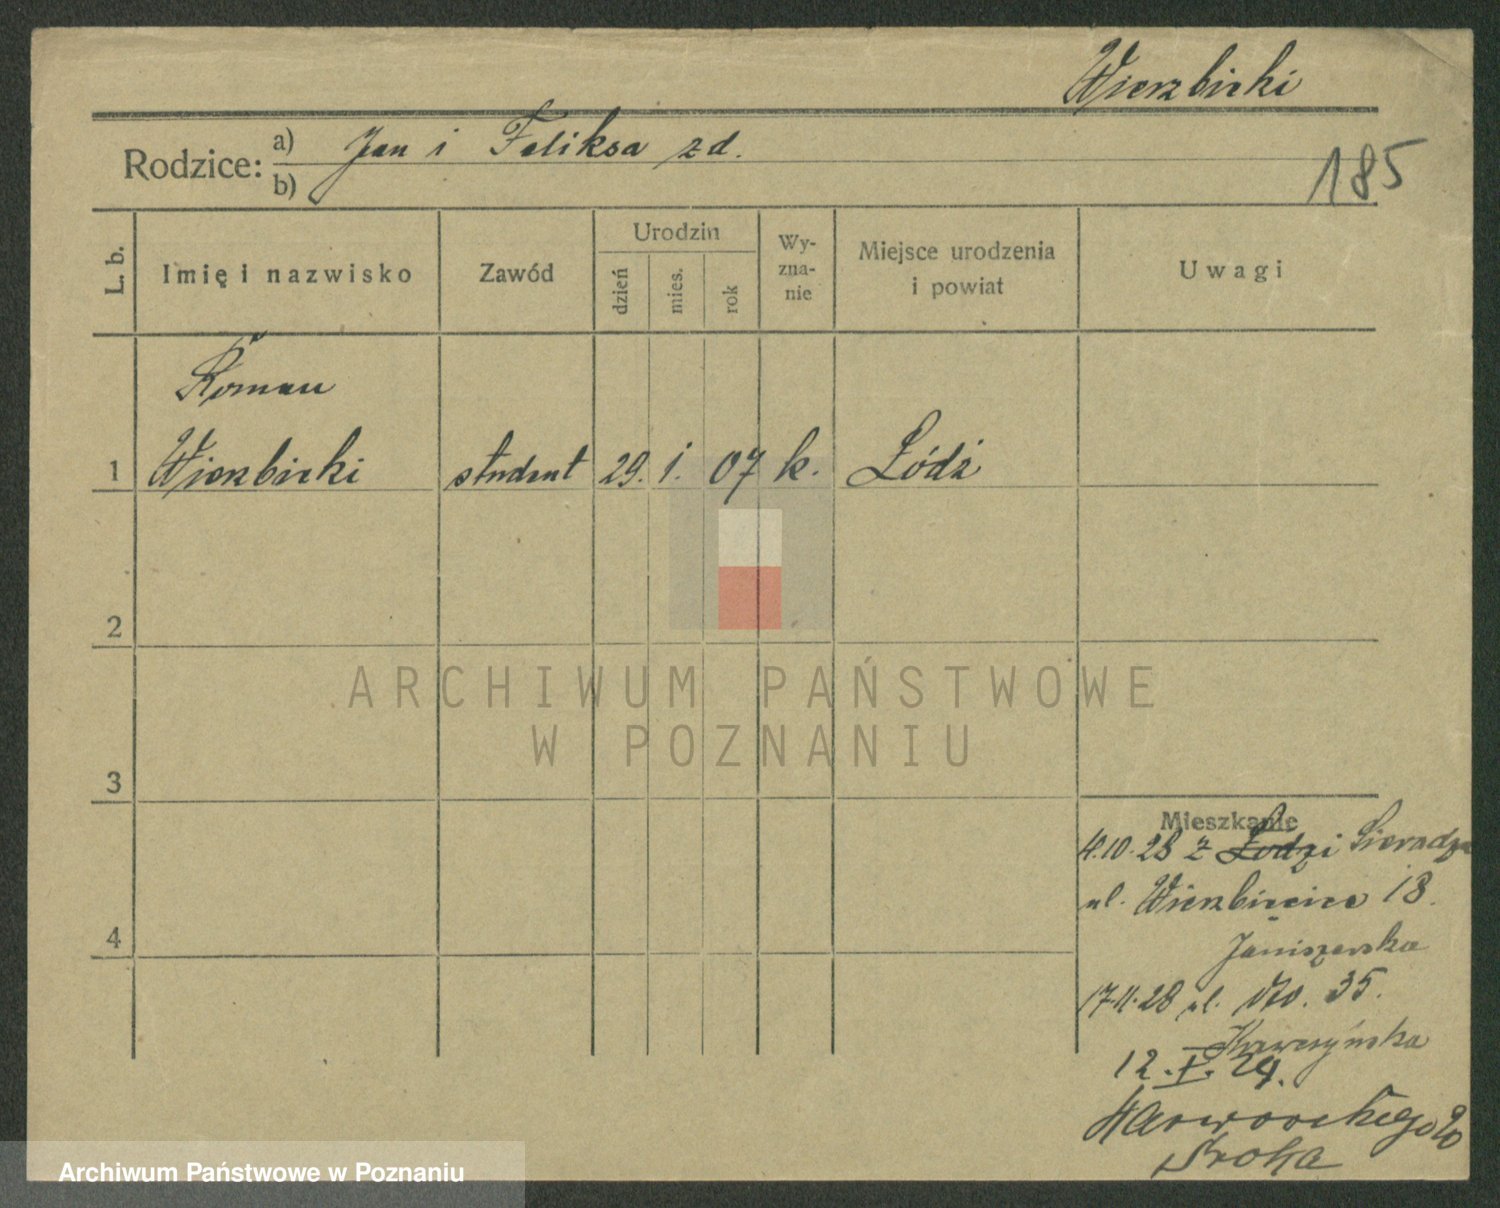 Wierzbicki
Rodzice: a) Jan i Feliksa zd.
b)
185
L. b.
Imię i nazwisko
Zawód
Urodzin
dzień
mies.
rok
Wy-
zna-
nie
Miejsce urodzenia
i powiat
Uwagi
Roman
1 Wierzbicki student 29. 1. 07 k. Łódź
2
3
4
Mieszkanie
4.10.28 z Łodzi Sieradza
ul. Wierzbięcice 18.
Janiszewska
17.11.28 ul. 35.
12.I.29.
20
Sroka
ARCHIWUM PAŃSTWOWE
W POZNANIU
Archiwum Państwowe w Poznaniu